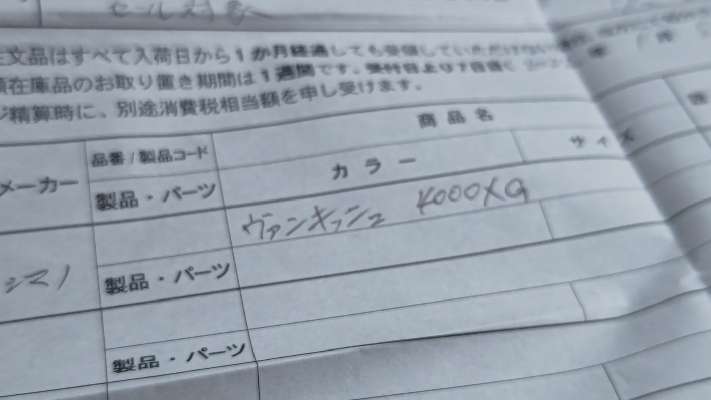 セール対象
文品はすべて入荷日から1か月経過しても受領していただけない
在庫品のお取り置き期間は1週間です。受付日より7日後
ジ精算時に、別途消費税相当額を申し受けます。
メーカー
品番/製品コード
商品名
製品・パーツ
カラー
サイズ
シマノ
ヴァンキッシュ 4000XG
製品・パーツ
製品・パーツ